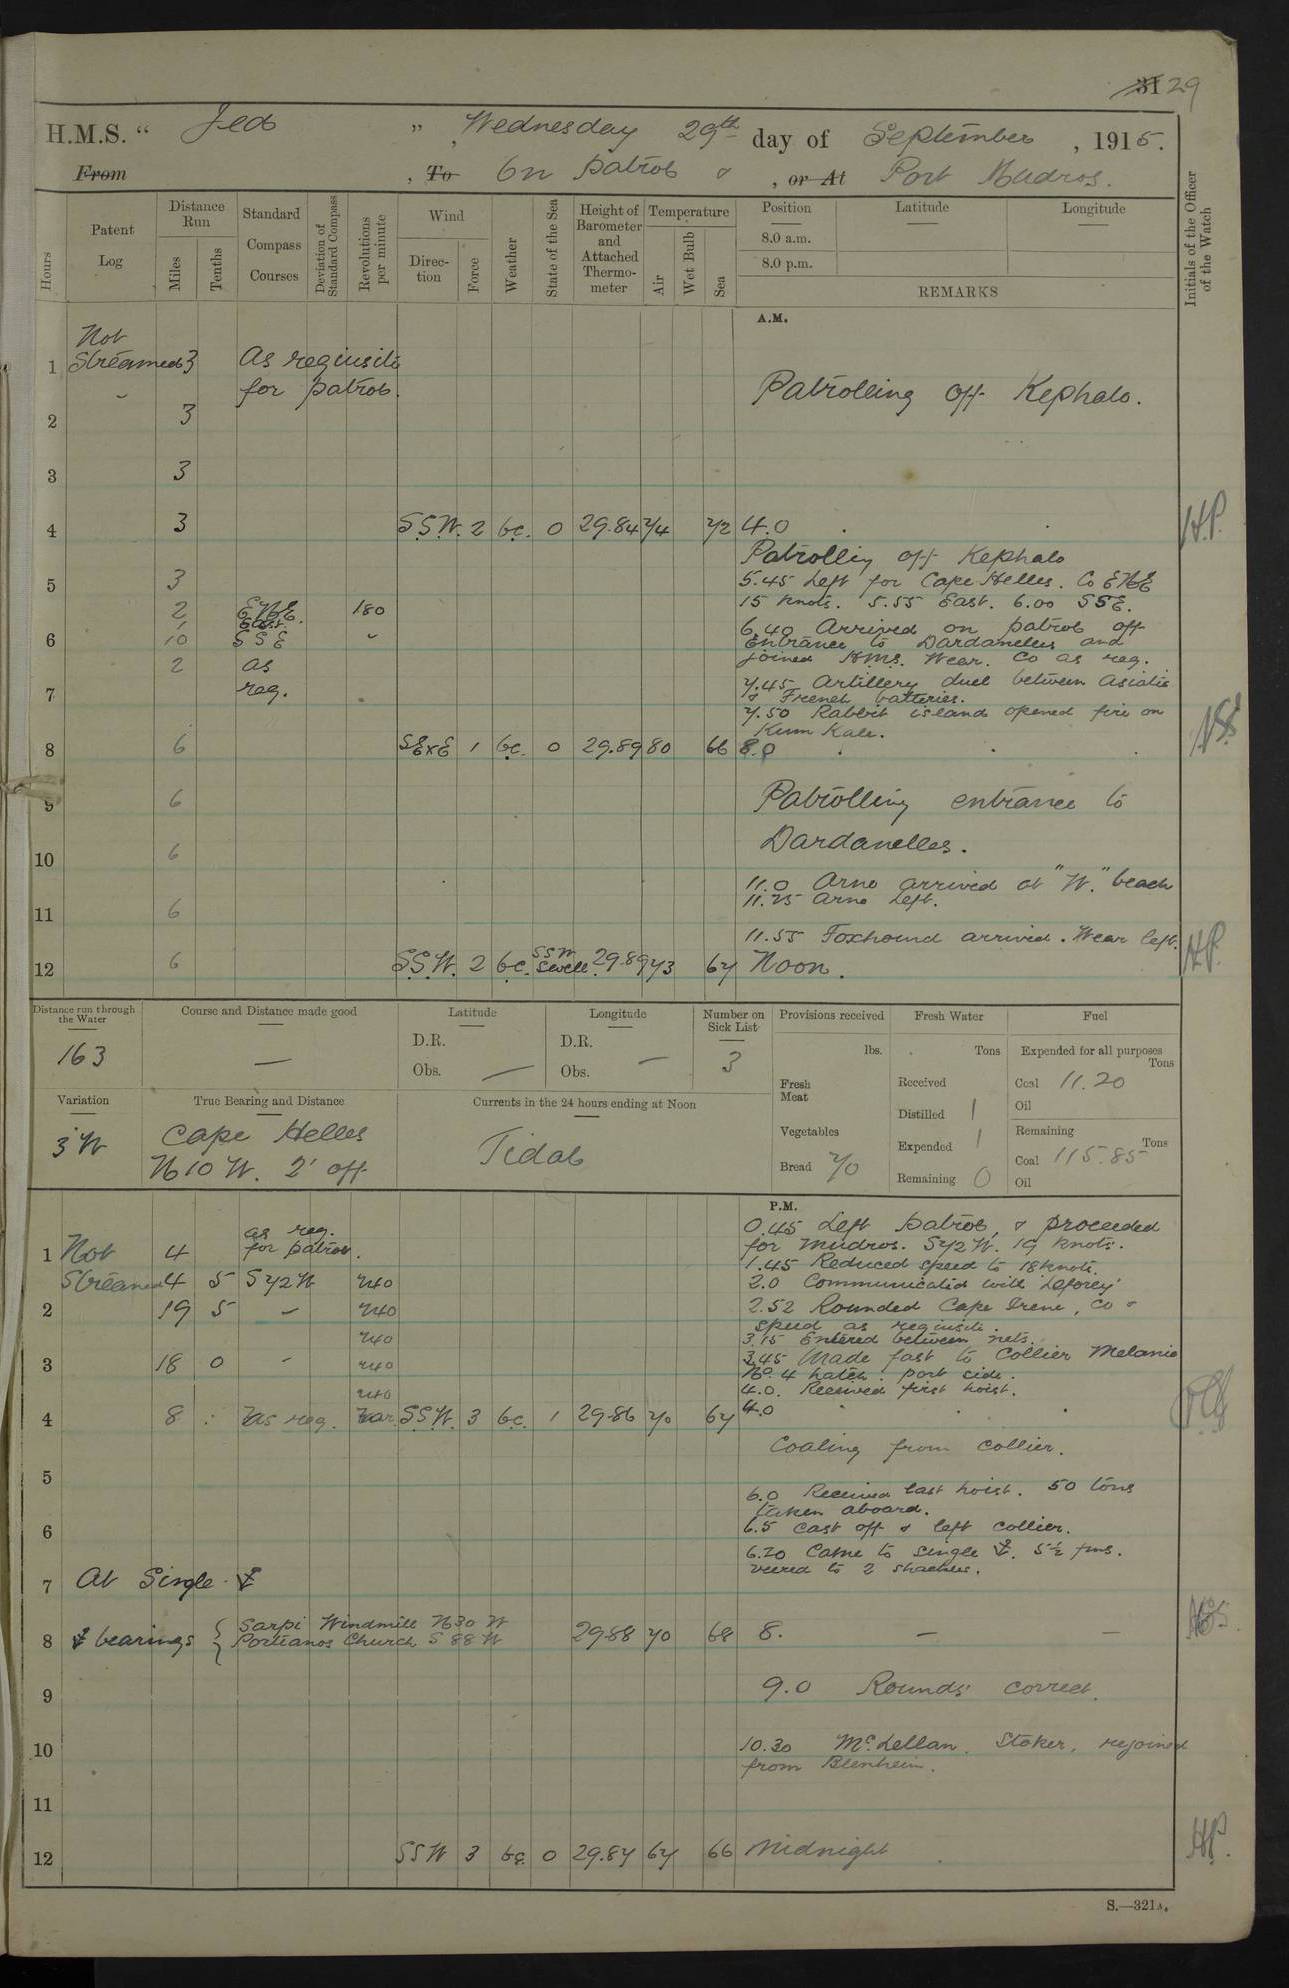 31 29
H.M.S. " Jed " , Wednesday 29th day of September , 1915.
From , To On patrol & , or At Port Mudros.
Hours
Patent Log
Distance Run
Miles
Tenths
Standard Compass Courses
Deviation of Standard Compass
Revolutions per minute
Wind
Direction
Force
Weather
State of the Sea
Height of Barometer and Attached Thermometer
Temperature
Air
Wet Bulb
Sea
Position
8.0 a.m.
8.0 p.m.
Latitude
Longitude
REMARKS
Initials of the Officer of the Watch
A.M.
Not
1 Streamed 3 As requisite
for patrol.
Patrolling off Kephalo.
2 3
3 3
4 3 S.S.W. 2 bc. 0 29.84 74 72 4.0 H.P.
Patrolling off Kephalo
5 3 5.45 Left for Cape Helles. Co ENE
15 knots. 5.55 East. 6.00 SSE.
2 ENE. 180
1 East.
6 10 SSE "
6.40 Arrived on patrol off
Entrance to Dardanelles and
joined HMS. Wear. Co as req.
2 as
7 req.
7.45 Artillery duel between Asiatic
& French batteries.
7.50 Rabbit island opened fire on
Kum Kale.
8 6 SExE 1 bc. 0 29.89 80 66 8.0
9 6 Patrolling entrance to
10 6 Dardanelles.
11.0 Arno arrived at "W." beach
11 6 11.25 Arno left.
11.55 Foxhound arrived. Wear left.
12 6 S.S.W. 2 bc. SSW Swell. 29.89 73 67 Noon. H.P.
Distance run through the Water
163
Course and Distance made good
—
Latitude
D.R.
Obs. —
Longitude
D.R.
Obs. —
Number on Sick List
3
Provisions received
lbs.
Fresh Meat
Vegetables
Bread 70
Fresh Water
Tons
Received
Distilled 1
Expended 1
Remaining 0
Fuel
Expended for all purposes
Tons
Coal 11.20
Oil
Remaining
Tons
Coal 115.85
Oil
Variation
3°W
True Bearing and Distance
Cape Helles
N 10 W. 2' off
Currents in the 24 hours ending at Noon
Tidal
P.M.
0.45 Left patrol, & proceeded
for Mudros. S72W. 19 knots.
1 Not 4 as req. for patrol.
1.45 Reduced speed to 18 knots.
Streamed 4 5 S72W 240
2.0 Communicated with 'Laforey'
2 19 5 – 240
2.52 Rounded Cape Irene, Co &
speed as requisite.
240
3.15 Entered between nets.
3 18 0 – 240
3.45 Made fast to Collier Melanie
No. 4 hatch. port side.
240
4.0. Received first hoist.
4 8 as req. Var. S.S.W. 3 bc. 1 29.86 70 67 4.0
Coaling from collier.
5
6.0 Received last hoist. 50 tons
taken aboard.
6 6.5 Cast off & left collier.
6.20 Came to single ⚓. 5½ fms.
veered to 2 shackles.
7 At Single ⚓
8 ⚓ bearings { Sarpi Windmill N30W
Portianos Church S 88 W
29.88 70 68 8. — —
9 9.0 Rounds correct.
10 10.30 McLellan. Stoker, rejoined
from Blenheim.
11
12 SSW 3 bc. 0 29.87 67 66 Midnight H.P.
S.—321A.